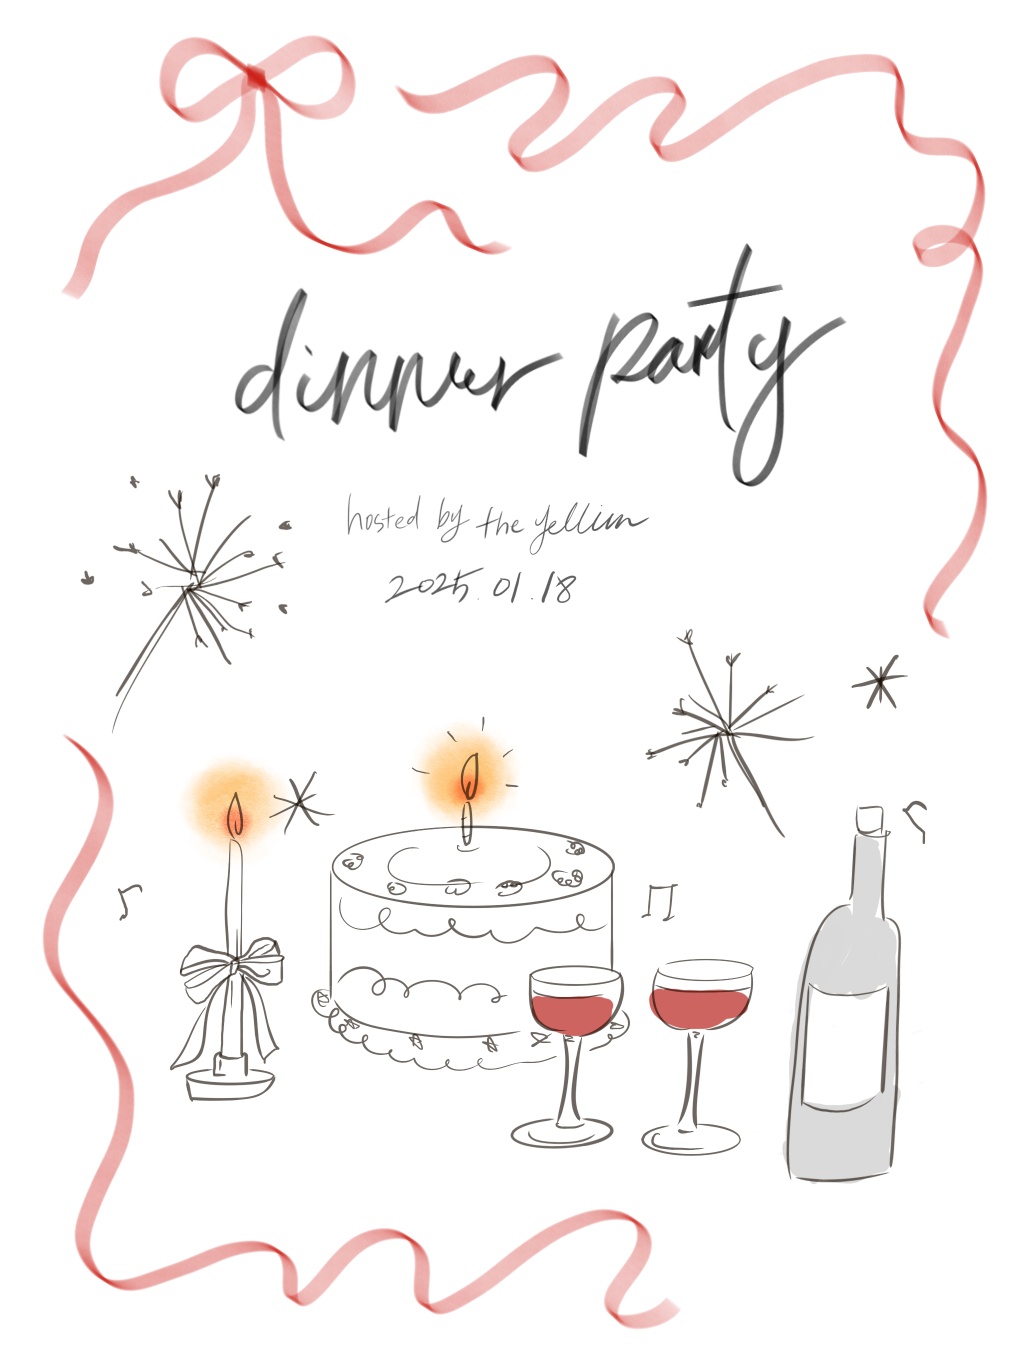 dinner party
hosted by the yellim
2025.01.18